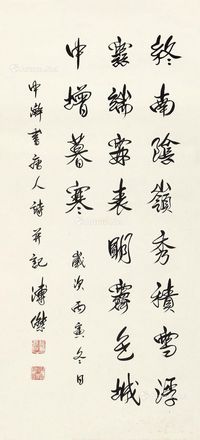 終南陰嶺秀積雪浮
雲端表明霽色城
中增暮寒
歲次丙寅冬日
書唐人詩并記 溥傑